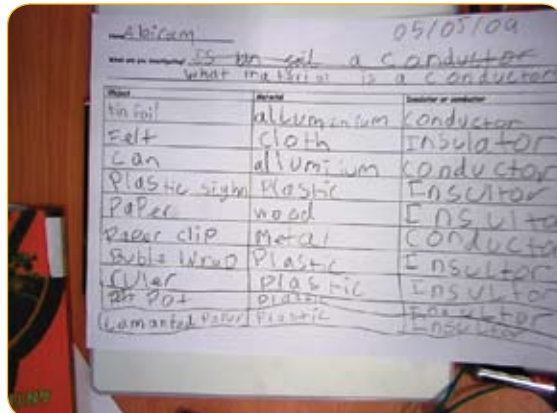 Name Abicam 05/05/09
What are you investigating? Is tin foil a conductor
what material is a conductor
Object Material Insulator or conductor
tin foil alluminium conductor
Felt cloth Insulator
can allumium conductor
Plastic sighn Plastic Insultor
Paper wood Insultor
Paper clip Metal Conducto
Buble Wrap Plastic Insultor
ruler plastic Insultor
Pot plastic Insultor
Lamanted Paper Plastic Insultor